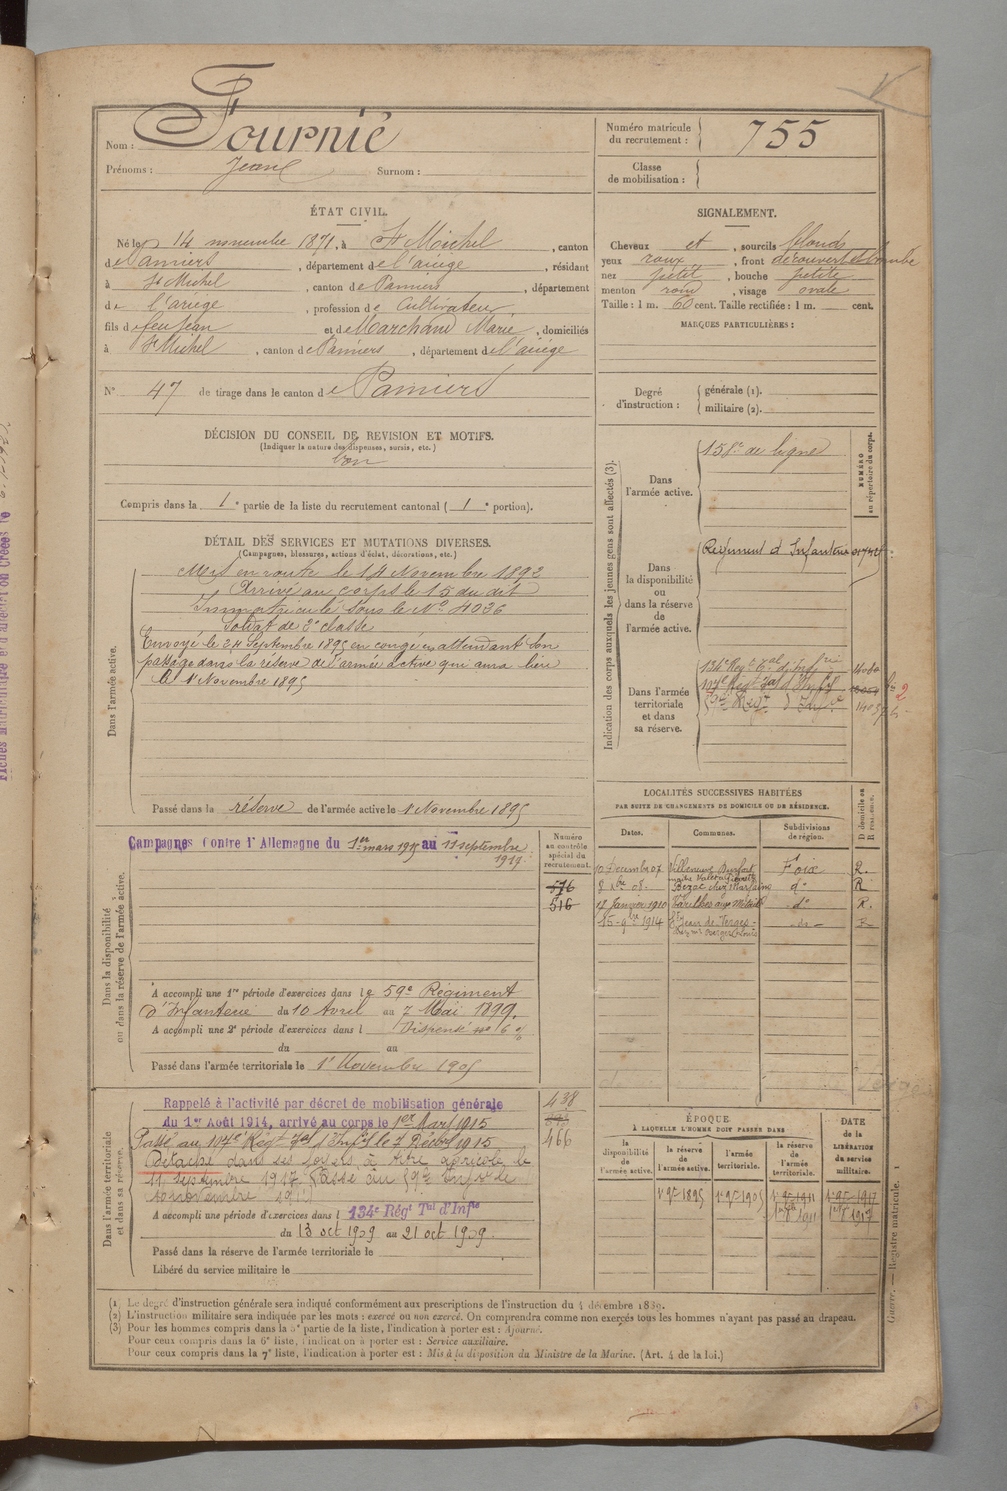 Nom : Fournié
Prénoms : Jean Surnom :
Numéro matricule du recrutement : 755
Classe de mobilisation :
ÉTAT CIVIL.
Né le 14 novembre 1871, à St Michel, canton
de Pamiers, département de l'ariège, résidant
à St Michel, canton de Pamiers, département
de l'ariège, profession de Cultivateur
fils de feu Jean et de Marchand Marie, domiciliés
à St Michel, canton de Pamiers, département de l'ariège
N° 47 de tirage dans le canton de Pamiers
SIGNALEMENT.
Cheveux et, sourcils blonds
yeux roux, front découvert et bombé
nez petit, bouche petite
menton rond, visage ovale
Taille : 1 m. 60 cent. Taille rectifiée : 1 m. cent.
MARQUES PARTICULIÈRES :
Degré d'instruction : générale (1).
militaire (2).
DÉCISION DU CONSEIL DE REVISION ET MOTIFS.
(Indiquer la nature des dispenses, sursis, etc.)
bon
Compris dans la 1e partie de la liste du recrutement cantonal (1e portion).
DÉTAIL DES SERVICES ET MUTATIONS DIVERSES.
(Campagnes, blessures, actions d'éclat, décorations, etc.)
Dans l'armée active.
Mis en route le 14 Novembre 1892
Arrivé au corps le 15 du dit
Immatriculé sous le No 4036
Soldat de 2e classe
Envoyé le 24 Septembre 1895 en congé en attendant son
passage dans la réserve de l'armée active qui aura lieu
le 1 Novembre 1895
Passé dans la réserve de l'armée active le 1 Novembre 1895
Indication des corps auxquels les jeunes gens sont affectés (3).
NUMÉRO au répertoire du corps.
Dans l'armée active.
158e de ligne
Dans la disponibilité ou dans la réserve de l'armée active.
Régiment d'Infanterie
Dans l'armée territoriale et dans sa réserve.
134e Régt Tal d'Infrie
Dans la disponibilité ou dans la réserve de l'armée active.
Campagnes Contre l'Allemagne du 1er mars 1915 au 11 septembre
1917
Numéro au contrôle spécial du recrutement.
576
516
A accompli une 1re période d'exercices dans le 59e Régiment
d'Infanterie du 10 Avril au 7 Mai 1899.
A accompli une 2e période d'exercices dans l Dispensé
du au
Passé dans l'armée territoriale le 1er Novembre 1905
LOCALITÉS SUCCESSIVES HABITÉES
PAR SUITE DE CHANGEMENTS DE DOMICILE OU DE RÉSIDENCE.
Dates. Communes. Subdivisions de région. D domicile ou R résidence.
10 Décembre 07 Villeneuve Foix R.
8 Xbre 08. Bézac do R
17 Janvier 1910 Varilhes do R.
15-9bre 1914 St Jean de Verges do R
Dans l'armée territoriale et dans sa réserve.
Rappelé à l'activité par décret de mobilisation générale
du 1er Août 1914, arrivé au corps le 1er Mars 1915
Passé au 197e Régt Tal d'Inf le 7 Décbre 1915
Détaché dans ses foyers à titre agricole le
11 septembre 1917. Passé au 59e Infie le
novembre
438
466
A accompli une période d'exercices dans l 134e Régt Tal d'Infie
du 13 oct 1909 au 21 oct 1909.
Passé dans la réserve de l'armée territoriale le
Libéré du service militaire le
ÉPOQUE
À LAQUELLE L'HOMME DOIT PASSER DANS
la disponibilité de l'armée active.
la réserve de l'armée active.
l'armée territoriale.
la réserve de l'armée territoriale.
DATE de la LIBÉRATION du service militaire.
1 9bre 1895 1 9bre 1905 1 9bre 1911 1 9bre 1917
1911 1917
(1) Le degré d'instruction générale sera indiqué conformément aux prescriptions de l'instruction du 4 décembre 1889.
(2) L'instruction militaire sera indiquée par les mots : exercé ou non exercé. On comprendra comme non exercés tous les hommes n'ayant pas passé au drapeau.
(3) Pour les hommes compris dans la 5e partie de la liste, l'indication à porter est : Ajourné.
Pour ceux compris dans la 6e liste, l'indication à porter est : Service auxiliaire.
Pour ceux compris dans la 7e liste, l'indication à porter est : Mis à la disposition du Ministre de la Marine. (Art. 4 de la loi.)
Guerre. — Registre matricule. 1